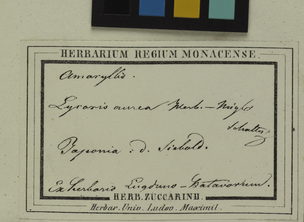 HERBARIUM REGIUM MONACENSE.
Amaryllis.
Lycoris aurea Herb. —
Japonia: d. Siebold.
Ex herbario Lugduno-Batavorum.
HERB. ZUCCARINII.
Herbar. Univ. Ludov. Maximil.